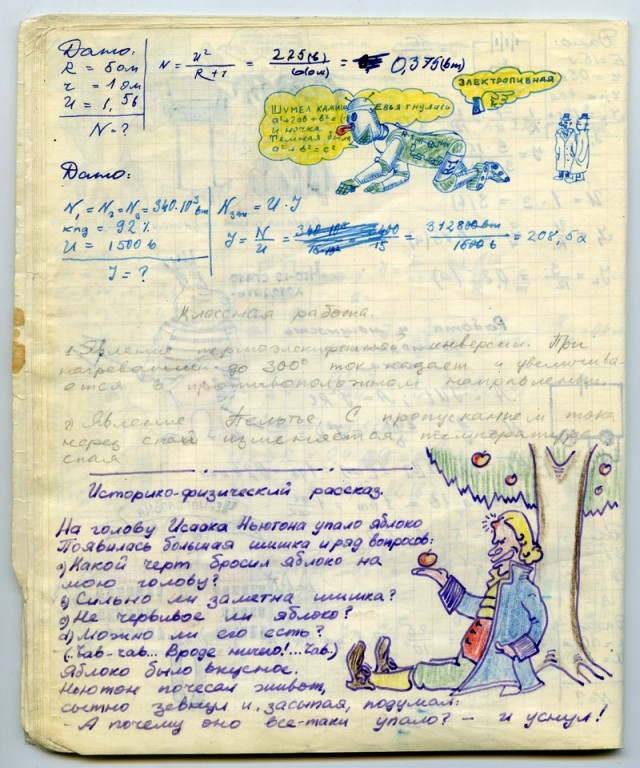 Дато:
R = 5 ом
r = 1 ом
U = 1,5в
N = ?
N = U² / (R + r) = 2,25(в) / 6(ом) = 0,375(вт)
ЭЛЕКТРОПИВНАЯ
ШУМЕЛ КАМЫШ ЕВЬЯ ГНУЛИСЬ
a²+2ab+b²=
И НОЧКА
ТЕМНАЯ БЫЛА
a²+b²=c²
Дато:
N₁ = N₂ = N₃ = 340·10³ вт
кпд = 92%
U = 1500 в
J = ?
N эт = U · J
J = N / U = = 312800 вт / 1500 в = 208,5 а
Классная работа.
1) Явление инверсии. При
нагревании до 300° ток падает и увеличива-
ется в противоположном направлении.
2) Явление Пельтье. С пропусканием тока
через спай изменяется температура
спая
Историко-физический рассказ.
На голову Исаака Ньютона упало яблоко
Появилась большая шишка и ряд вопросов:
а) Какой черт бросил яблоко на
мою голову?
б) Сильно ли заметна шишка?
в) Не червивое ли яблоко?
г) Можно ли его есть?
(.. Чав-чав... Вроде ничего!... Чав.)
Яблоко было вкусное.
Ньютон почесал живот,
сытно зевнул и, засыпая, подумал:
- А почему оно все-таки упало? - и уснул!